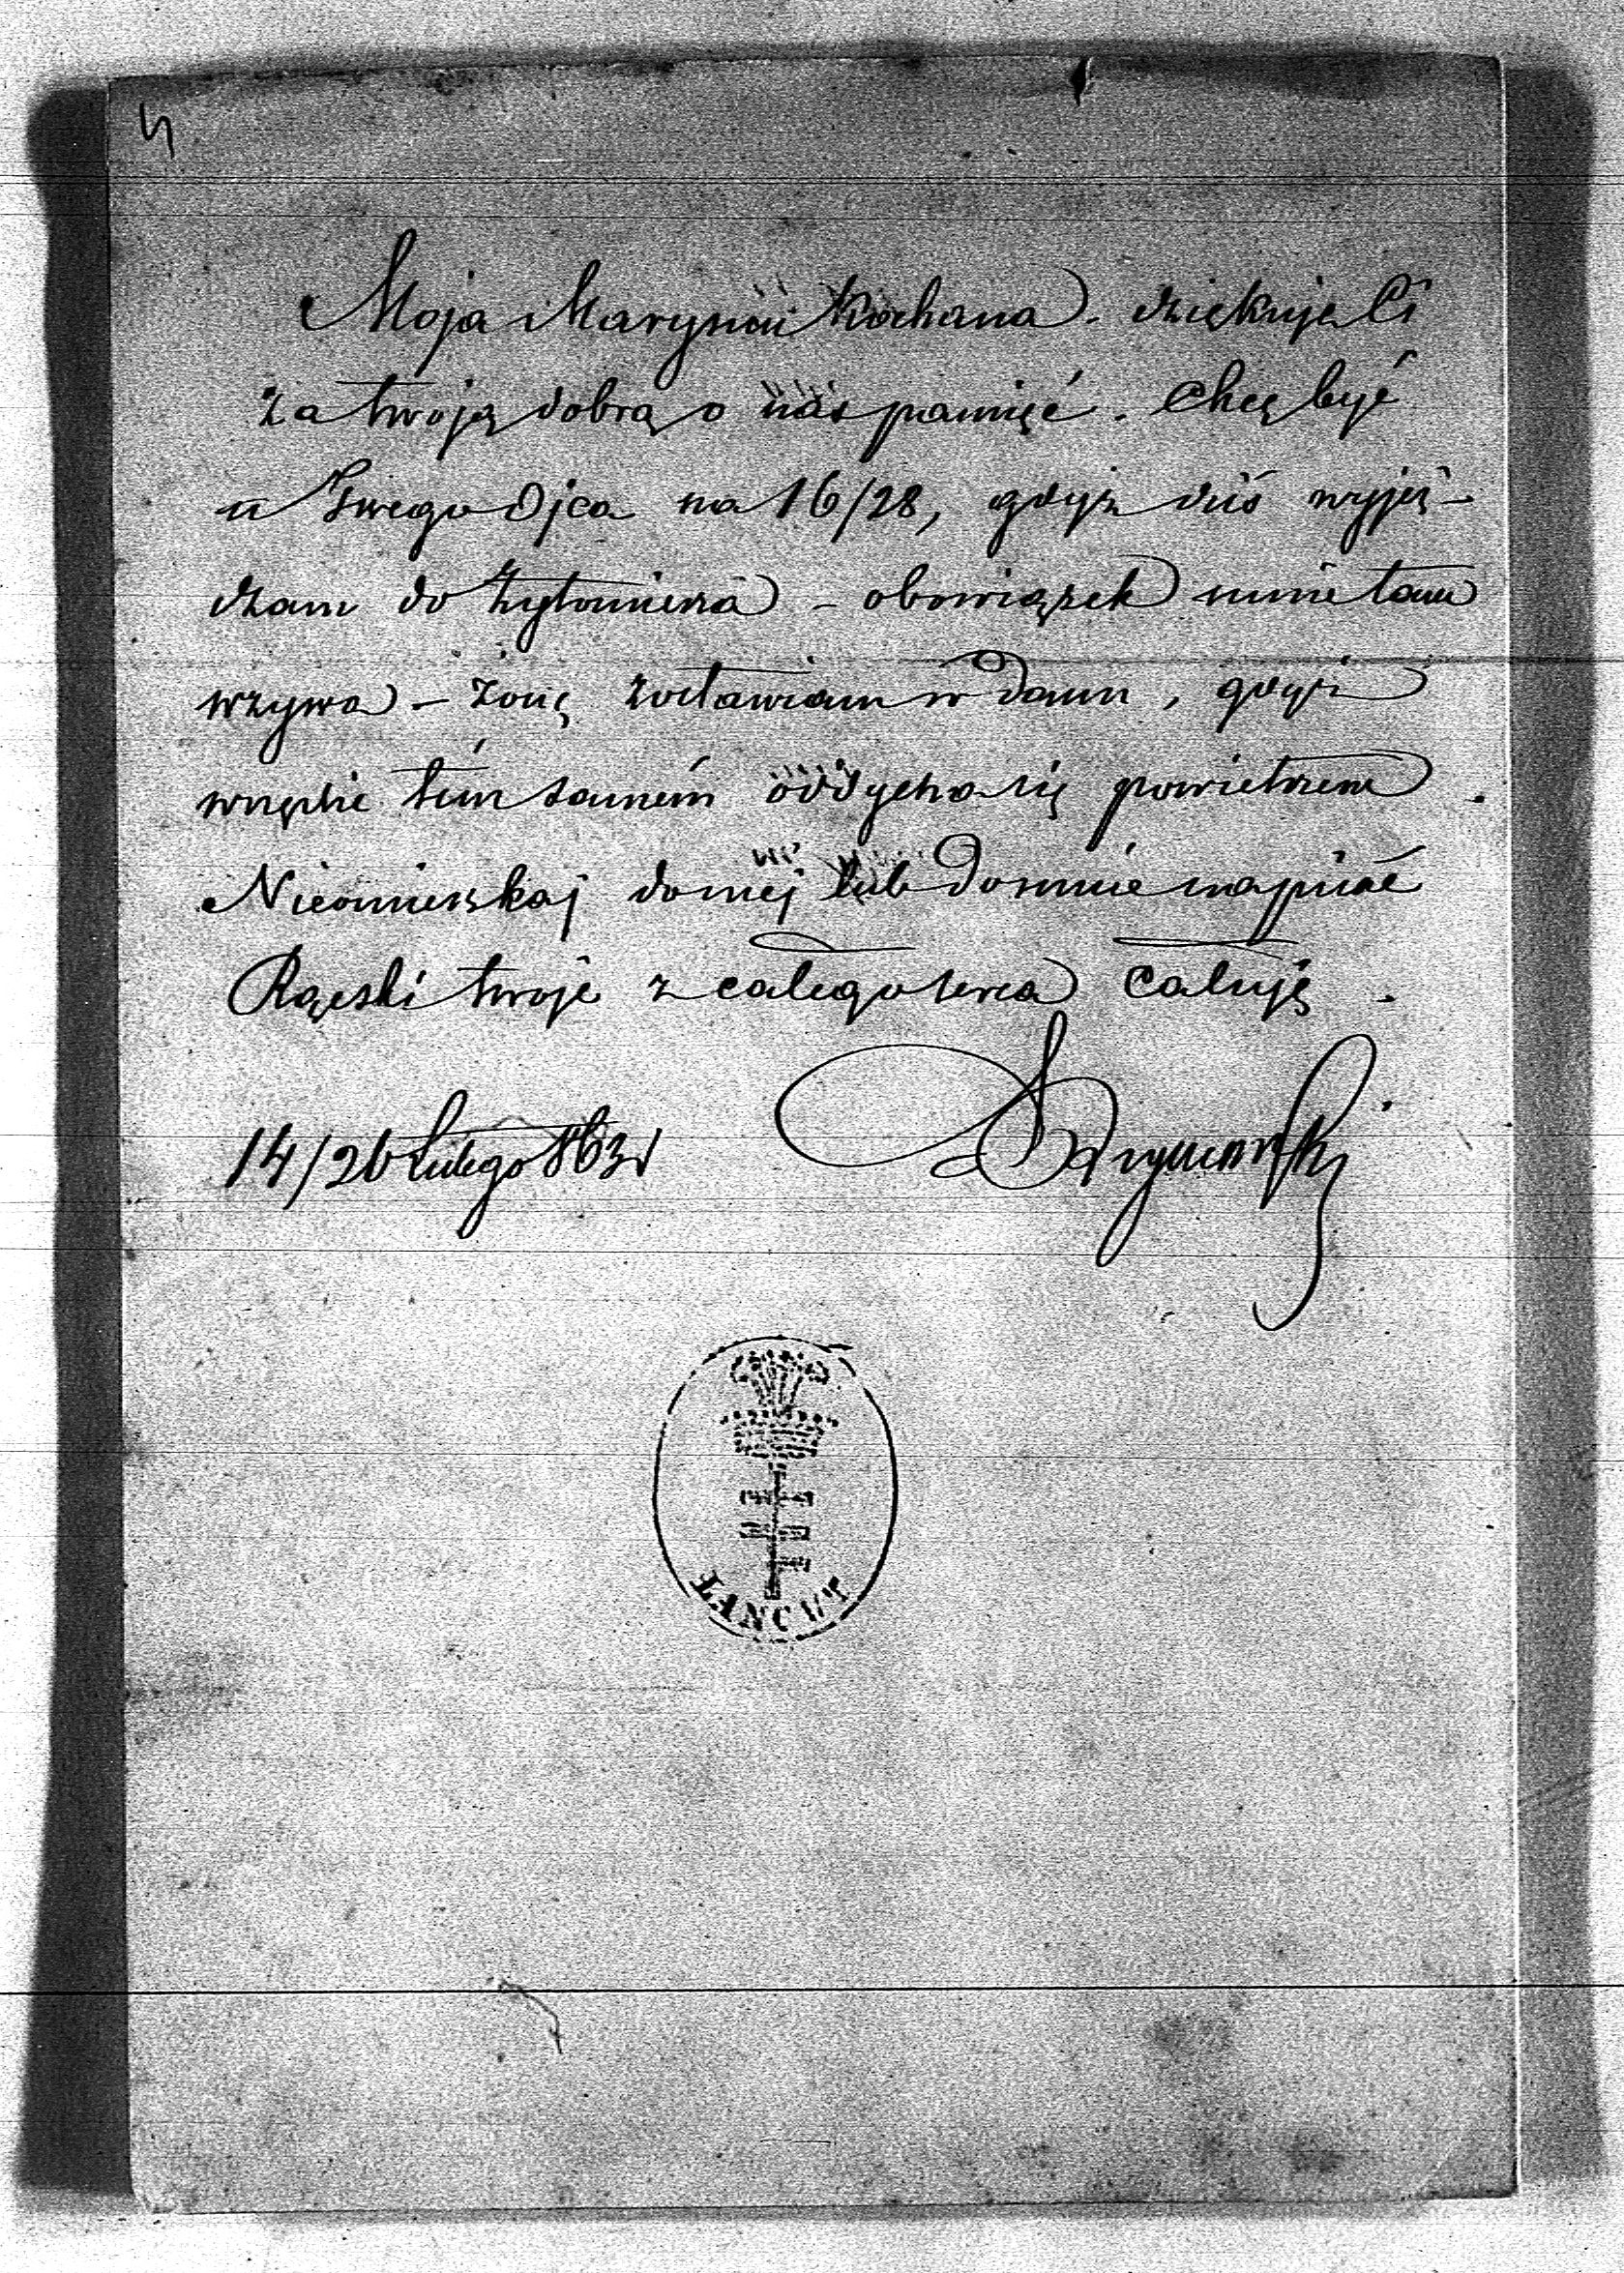 Moja Marysiu kochana. dziękuję Ci
za twoją dobrą o nas pamięć. Chcę być
u Twego Ojca na 16/28, gdyż dziś wyjeż-
dżam do Żytomierza – obowiązek mnie tam
wzywa – żonę zostawiam w domu, gdyż
wszędzie tém samém oddycha się powietrzem.
Nieomieszkaj do niej lub do mnie napisać
Rączki twoje z całego serca całuję.
14/26 Lutego 863 r
ŁAŃCUT